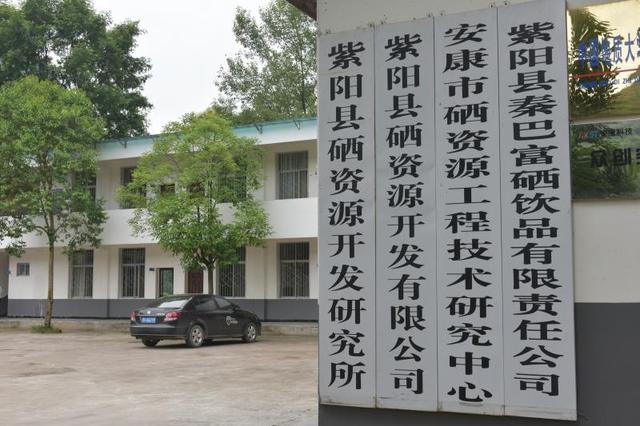 紫阳县硒资源开发研究所
紫阳县硒资源开发有限公司
安康市硒资源工程技术研究中心
紫阳县秦巴富硒饮品有限责任公司
中国地质大
科技
众创